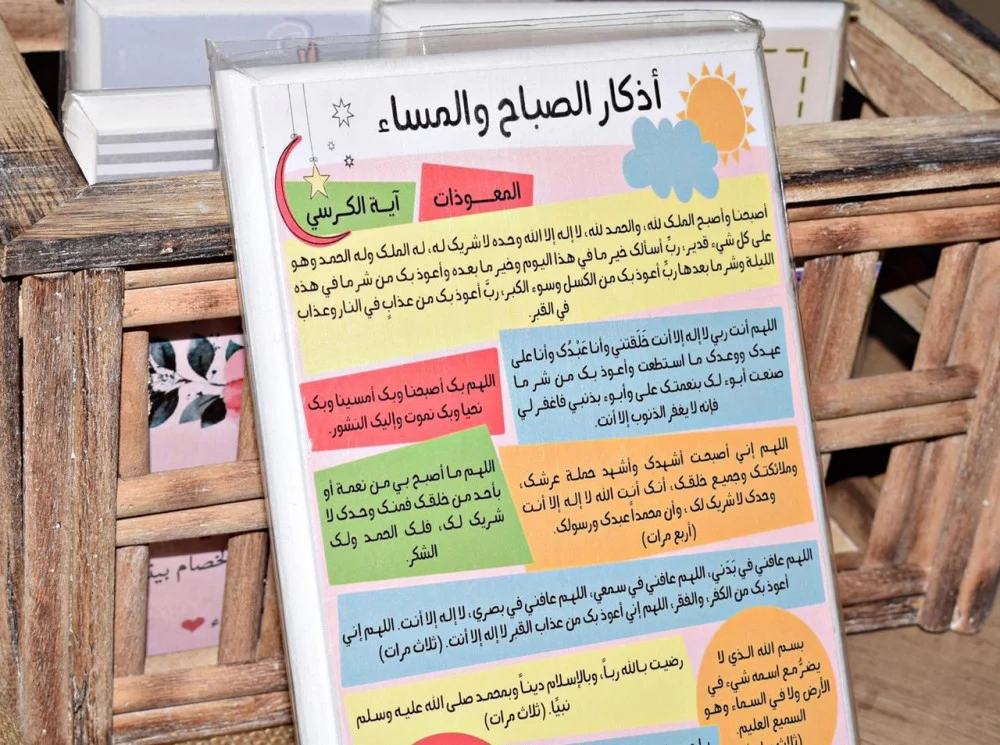 أذكار الصباح والمساء
المعوذات
آية الكرسي
أصبحنا وأصبح الملك لله، والحمد لله، لا إله إلا الله وحده لا شريك له، له الملك وله الحمد وهو
على كل شيء قدير، ربِّ أسألك خير ما في هذا اليوم وخير ما بعده وأعوذ بك من شر ما في هذه
الليلة وشر ما بعدها ربِّ أعوذ بك من الكسل وسوء الكبر، ربَّ أعوذ بك من عذابٍ في النار وعذاب
في القبر.
اللهم أنت ربي لا إله إلا أنت خَلَقتني وأنا عَبْدُك وأنا على
عهدك ووعدك ما استطعت وأعوذ بك من شر ما
صنعت أبوء لك بنعمتك علي وأبوء بذنبي فاغفر لي
فإنه لا يغفر الذنوب إلا أنت.
اللهم بك أصبحنا وبك أمسينا وبك
نحيا وبك نموت وإليك النشور.
اللهم إني أصبحت أشهدك وأشهد حملة عرشك،
وملائكتك وجميع خلقك، أنك أنت الله لا إله إلا أنت
وحدك لا شريك لك، وأن محمداً عبدك ورسولك.
(أربع مرات)
اللهم ما أصبح بي من نعمة أو
بأحد من خلقك فمنك وحدك لا
شريك لك، فلك الحمد ولك
الشكر.
اللهم عافني في بَدَني، اللهم عافني في سمعي، اللهم عافني في بصري، لا إله إلا أنت. اللهم إني
أعوذ بك من الكفر، والفقر، اللهم إني أعوذ بك من عذاب القبر لا إله إلا أنت. (ثلاث مرات)
بسم الله الذي لا
يضرُّ مع اسمه شيء في
الأرض ولا في السماء وهو
السميع العليم.
رضيت بالله رباً، وبالإسلام ديناً وبمحمد صلى الله عليه وسلم
نبيًّا. (ثلاث مرات)